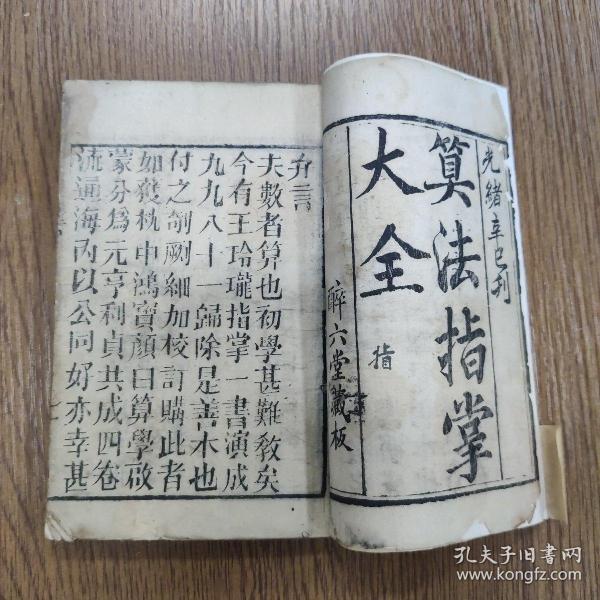 光緒辛巳刋
算法指掌
大全
指
醉六堂藏板
弁言
夫數者算也初學甚難教矣
今有王玲瓏指掌一書演成
九九八十一歸除是善本也
付之剞劂細加校訂購此者
如獲枕中鴻寶顔曰算學啟
蒙分爲元亨利貞共成四卷
流通海內以公同好亦幸甚
孔夫子旧书网
www.kongfz.com